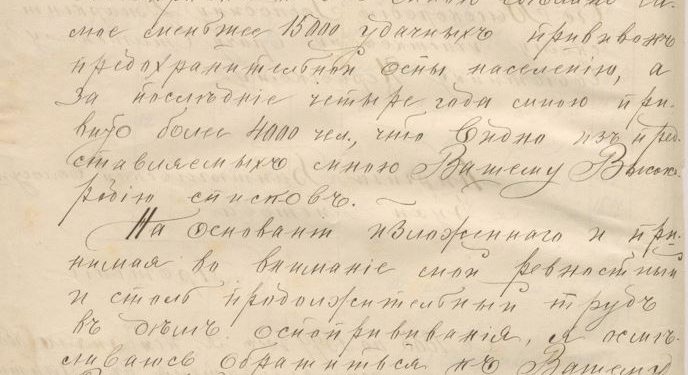 мое меньшее 15000 удачныхъ прививокъ
предохранительной оспы населенію, а
за послѣдніе четыре года мною при-
вито более 4000 чел., что видно изъ пред-
ставляемыхъ мною Вашему Высоко-
родію списковъ. —
На основаніи изложеннаго и при-
нимая во вниманіе мой ревностный
и столь продолжительный трудъ
въ дѣлѣ оспопрививанія, я осмѣ-
ливаюсь обратиться къ Вашему